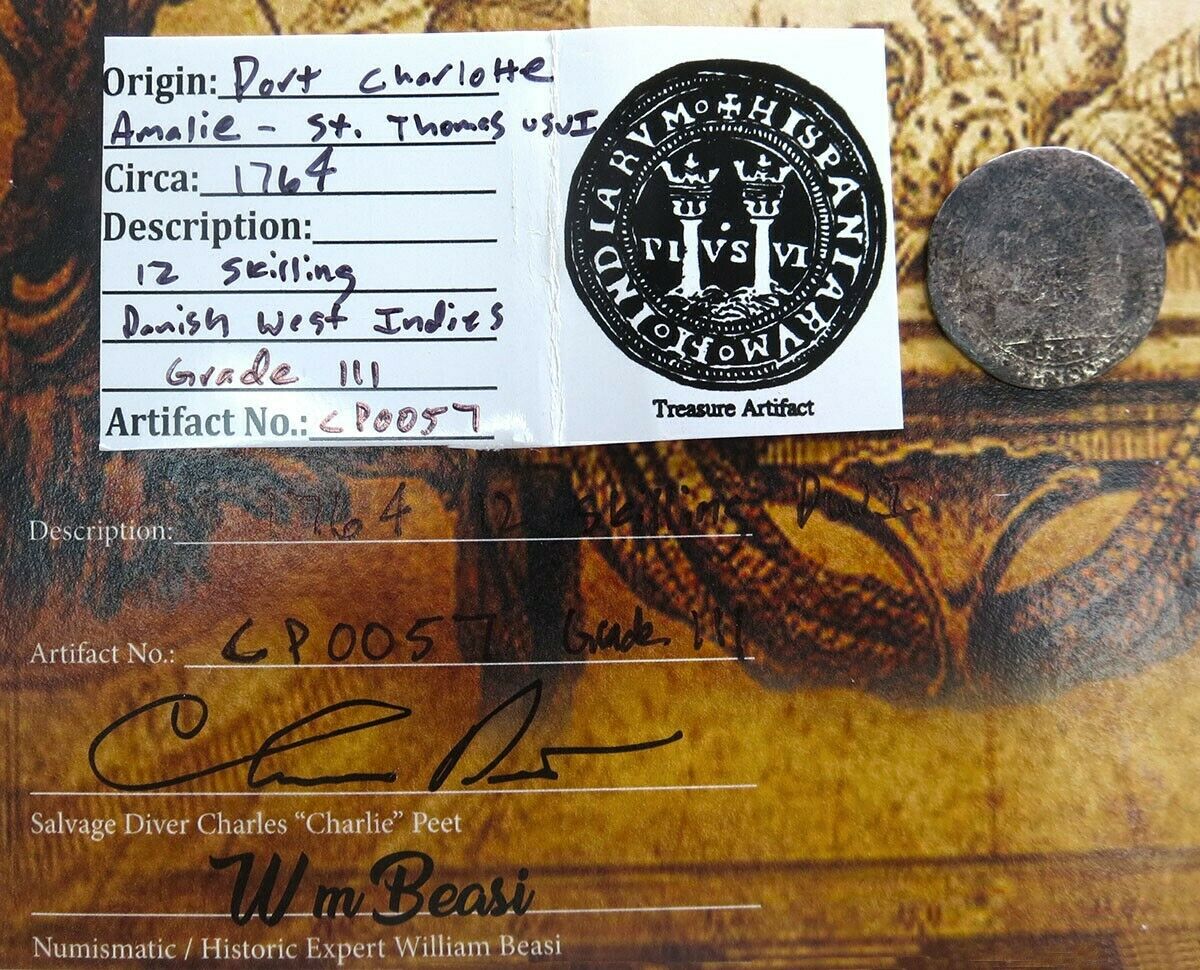 Origin: Port Charlotte
Amalie - St. Thomas USVI
Circa: 1764
Description:
12 Skilling
Danish West Indies
Grade III
Artifact No.: CP0057
✠HISPANIARVM
INDIARVM
PL VS VI
Treasure Artifact
Description: 1764 12 Skilling DWI
Artifact No.: CP0057 Grade III
Salvage Diver Charles “Charlie” Peet
Wm Beasi
Numismatic / Historic Expert William Beasi